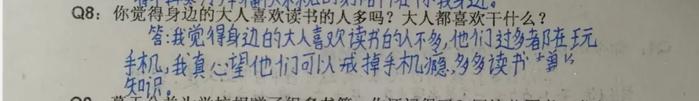 Q8：你觉得身边的大人喜欢读书的人多吗？大人都喜欢干什么？
答:我觉得身边的大人喜欢读书的人不多,他们过多者都在玩
手机,我真心望他们可以戒掉手机瘾,多多读书"曾"
知识。